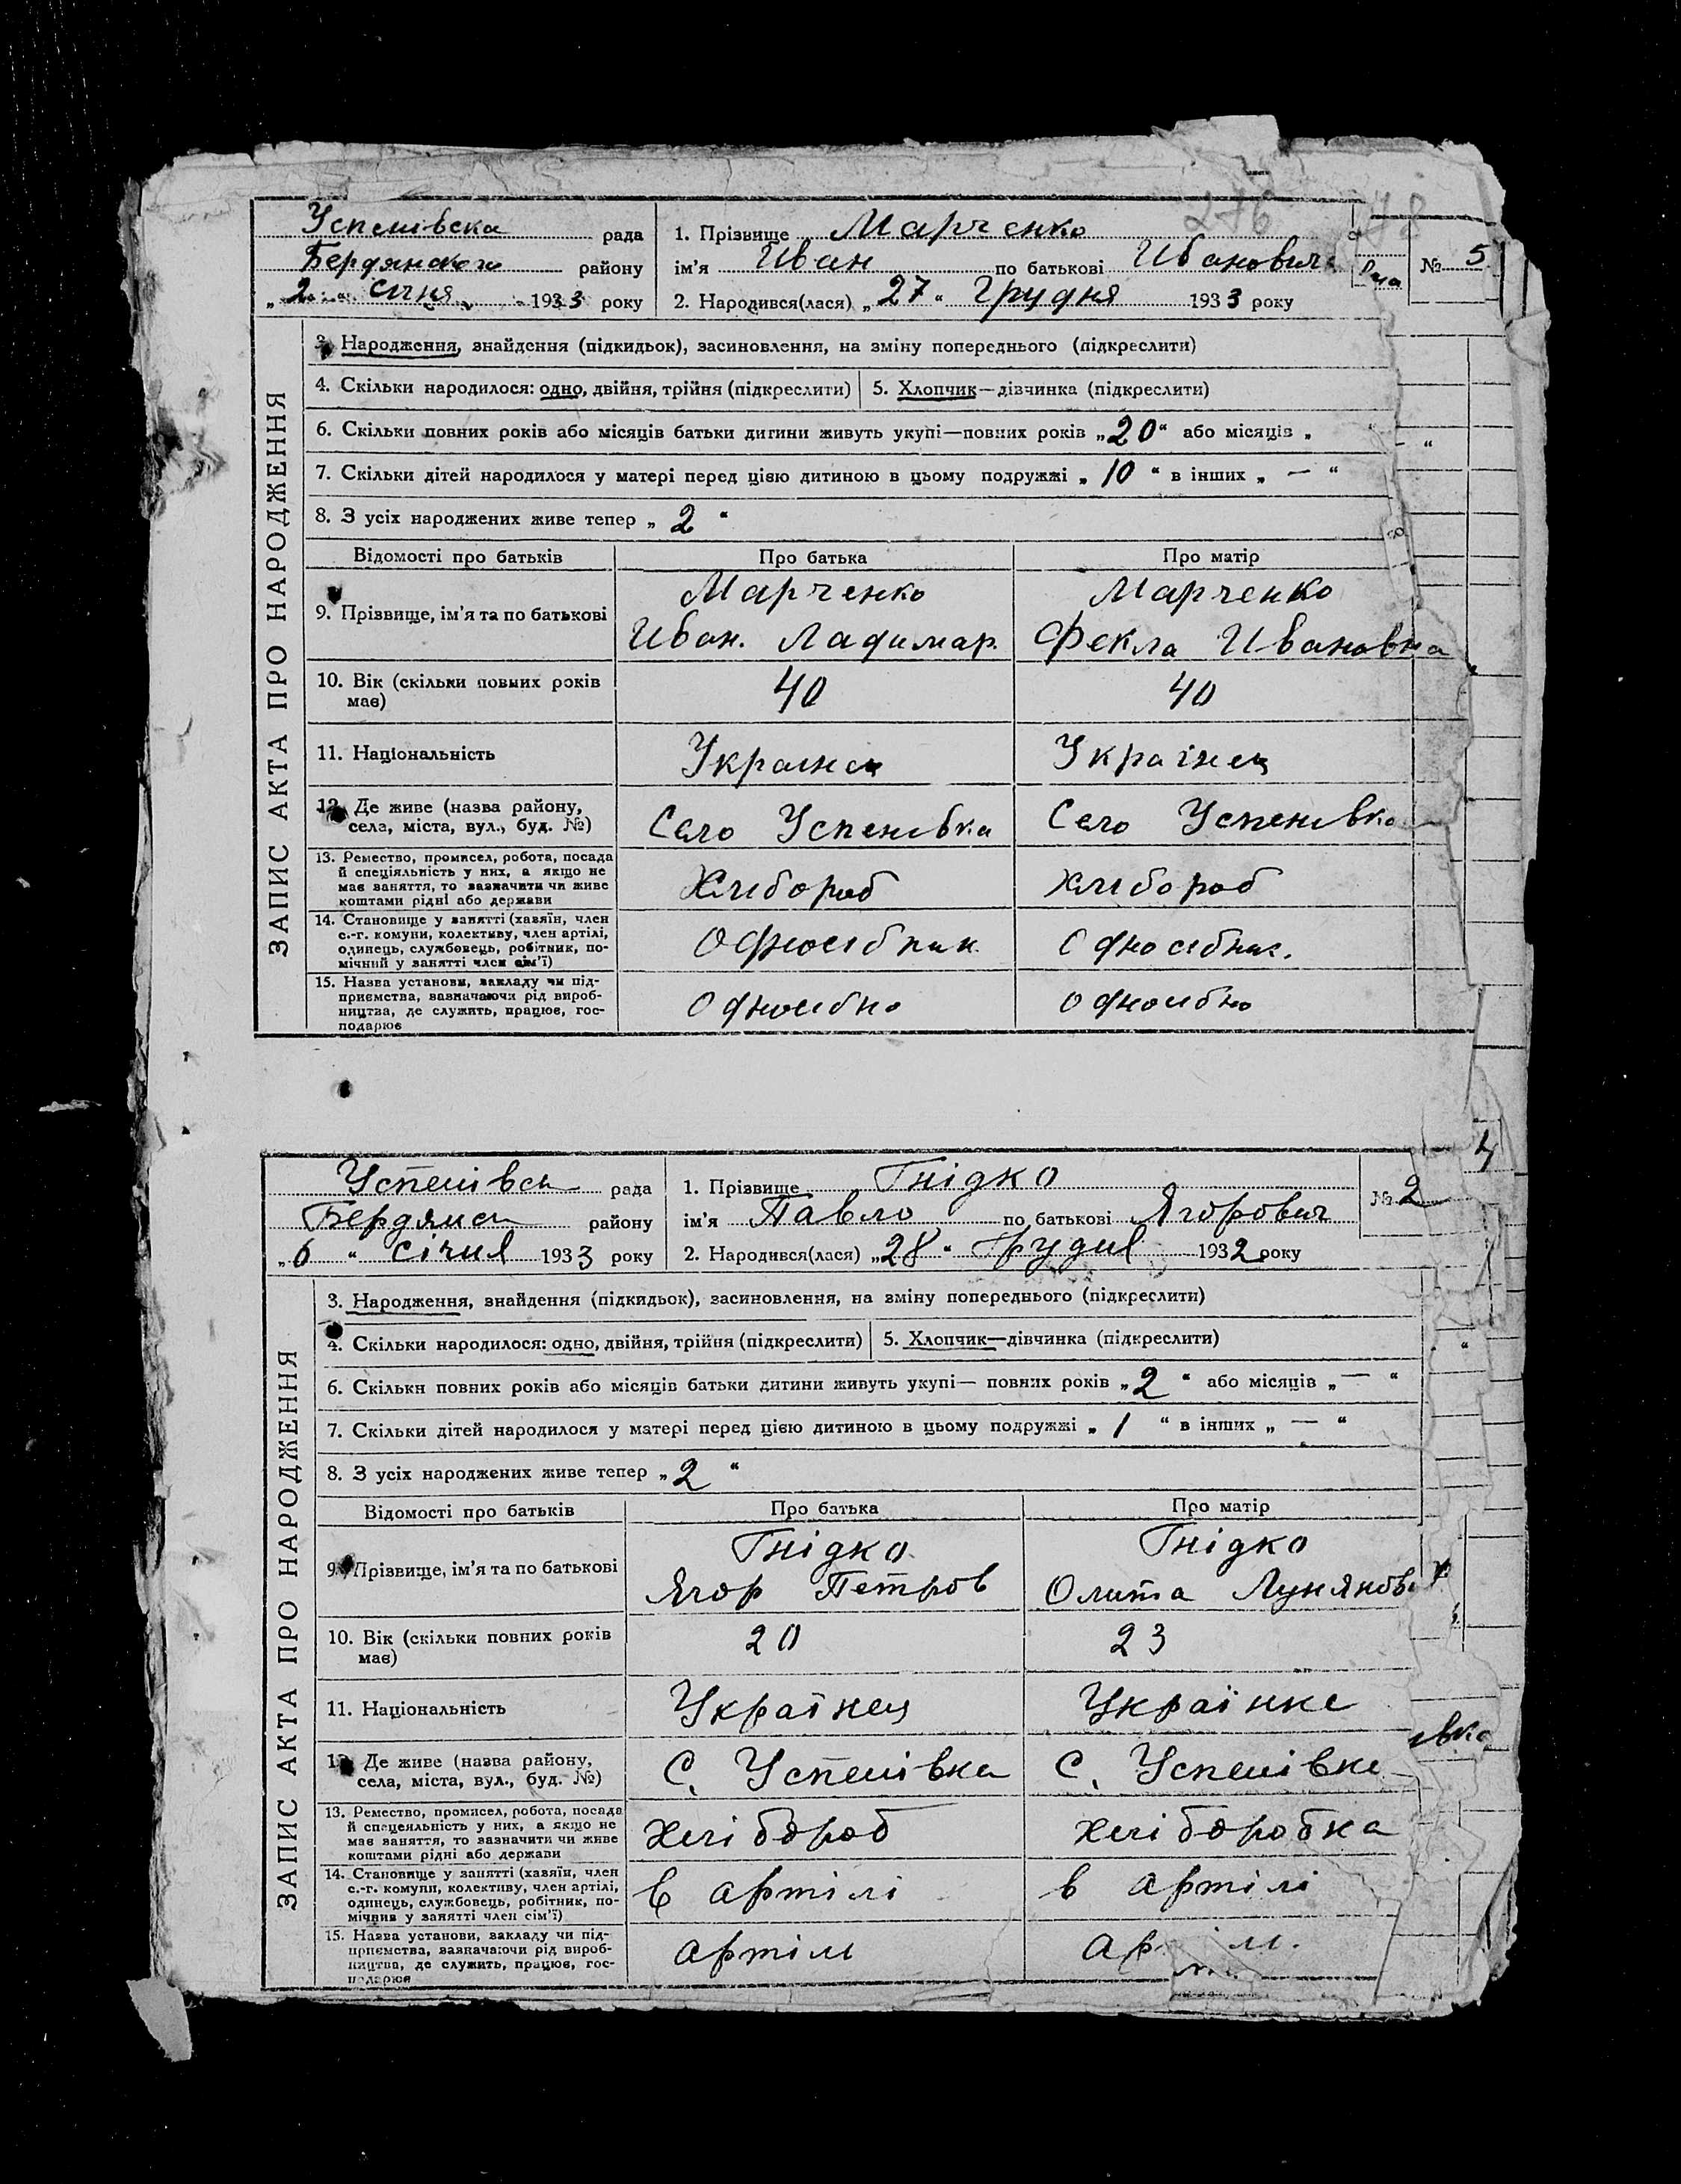 276 78
Успенівска рада
Бердянского району
„2“ січня 1933 року
1. Прізвище Марченко
ім'я Иван по батькові Иванович
2. Народився(лася) „27“ Грудня 1933 року
№ 5
ЗАПИС АКТА ПРО НАРОДЖЕННЯ
3. Народження, знайдення (підкидьок), засиновлення, на зміну попереднього (підкреслити)
4. Скільки народилося: одно, двійня, трійня (підкреслити) 5. Хлопчик—дівчинка (підкреслити)
6. Скільки повних років або місяців батьки дитини живуть укупі—повних років „20“ або місяців „ “
7. Скільки дітей народилося у матері перед цією дитиною в цьому подружжі „10“ в інших „—“
8. З усіх народжених живе тепер „2“
Відомості про батьків Про батька Про матір
9. Прізвище, ім'я та по батькові
Марченко Марченко
Иван. Ладимар. Фекла Ивановна
10. Вік (скільки повних років має) 40 40
11. Національність Украінец Украінец
12. Де живе (назва району,
села, міста, вул., буд. №) Село Успенівка Село Успенівка
13. Ремество, промисел, робота, посада
й спеціяльність у них, а якщо не
має заняття, то зазначити чи живе
коштами рідні або держави
Хлібороб хлібороб
14. Становище у занятті (хазяїн, член
с.-г. комуни, колективу, член артілі,
одинець, службовець, робітник, по-
мічний у занятті член сім'ї)
Одноосібник Одноосібник.
15. Назва установи, закладу чи під-
приємства, зазначаючи рід вироб-
ництва, де служить, працює, гос-
подарює
Одноосібно Одноосібно
Успенівск рада
Бердянск району
„6“ січня 1933 року
1. Прізвище Гнідко
ім'я Павло по батькові Ягорович
2. Народився(лася) „28“ Грудня 1932 року
№ 2
4
ЗАПИС АКТА ПРО НАРОДЖЕННЯ
3. Народження, знайдення (підкидьок), засиновлення, на зміну попереднього (підкреслити)
4. Скільки народилося: одно, двійня, трійня (підкреслити) 5. Хлопчик—дівчинка (підкреслити)
6. Скільки повних років або місяців батьки дитини живуть укупі— повних років „2“ або місяців „—“
7. Скільки дітей народилося у матері перед цією дитиною в цьому подружжі „1“ в інших „—“
8. З усіх народжених живе тепер „2“
Відомості про батьків Про батька Про матір
9. Прізвище, ім'я та по батькові
Гнідко Гнідко
Ягор Петров Олита Лунянов
10. Вік (скільки повних років
має) 20 23
11. Національність Українец Українке
12. Де живе (назва району,
села, міста, вул., буд. №) С. Успенівка С. Успенівке
івка
13. Ремество, промисел, робота, посада
й спецеяльність у них, а якщо не
має заняття, то зазначити чи живе
коштами рідні або держави
хлібороб хлібборобка
14. Становище у занятті (хазяїн, член
с.-г. комуни, колективу, член артілі,
одинець, службовець, робітник, по-
мічний у занятті член сім'ї)
в артілі в артілі
15. Назва установи, закладу чи під-
приємства, зазначаючи рід вироб-
ництва, де служить, працює, гос-
подарює
артіли